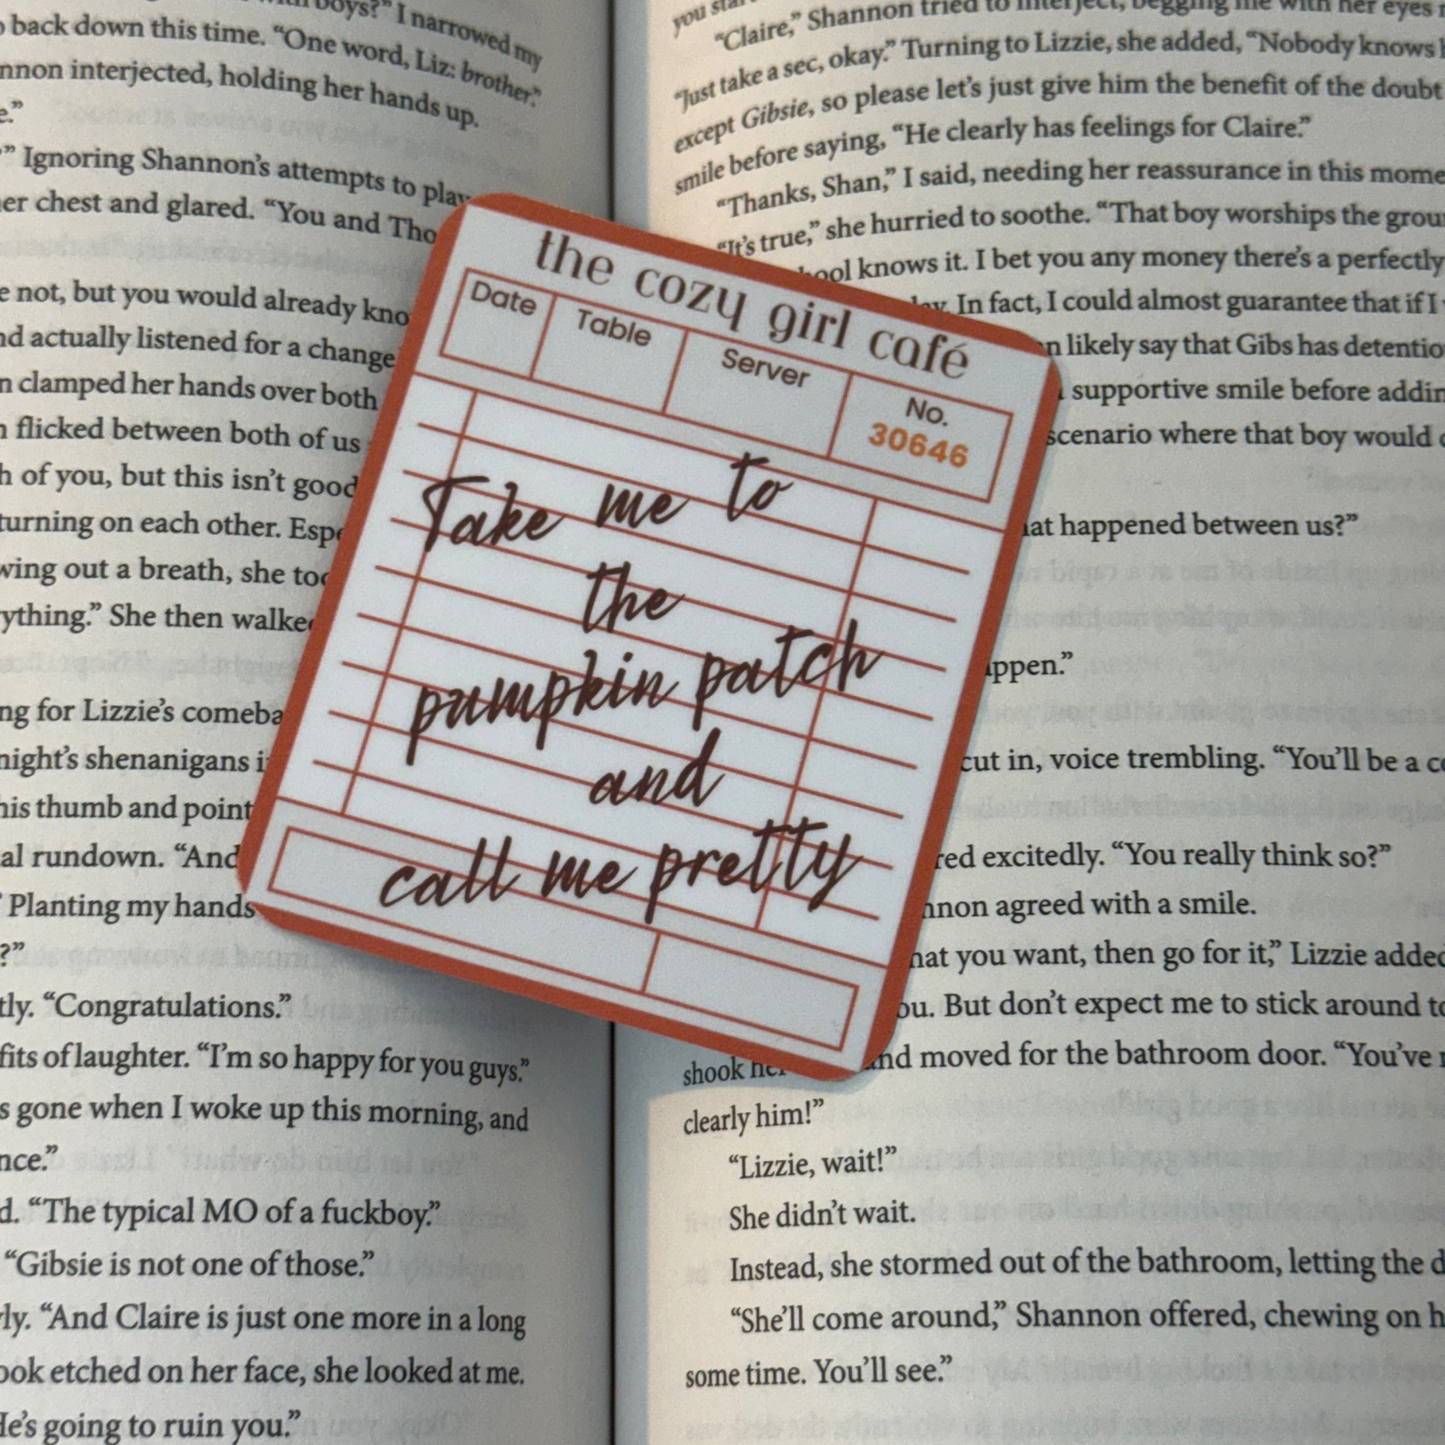 boys?” I narrowed my
back down this time. “One word, Liz: brother.”
nnon interjected, holding her hands up.
e.”
” Ignoring Shannon’s attempts to play
er chest and glared. “You and Tho
e not, but you would already kno
nd actually listened for a change
n clamped her hands over both
n flicked between both of us
h of you, but this isn’t good
turning on each other. Espe
wing out a breath, she too
ything.” She then walked
ng for Lizzie’s comeba
night’s shenanigans i
his thumb and point
al rundown. “And
Planting my hands
?”
tly. “Congratulations.”
fits of laughter. “I’m so happy for you guys.”
s gone when I woke up this morning, and
nce.”
d. “The typical MO of a fuckboy.”
“Gibsie is not one of those.”
ly. “And Claire is just one more in a long
ook etched on her face, she looked at me.
He’s going to ruin you.”
the cozy girl café
Date Table Server No.
30646
Take me to
the
pumpkin patch
and
call me pretty
you
“Claire,” Shannon tried to interject, begging me with her eyes
“Just take a sec, okay.” Turning to Lizzie, she added, “Nobody knows
except Gibsie, so please let’s just give him the benefit of the doubt
smile before saying, “He clearly has feelings for Claire.”
“Thanks, Shan,” I said, needing her reassurance in this mome
“It’s true,” she hurried to soothe. “That boy worships the grou
ool knows it. I bet you any money there’s a perfectly
In fact, I could almost guarantee that if I
n likely say that Gibs has detentio
supportive smile before addin
scenario where that boy would
at happened between us?”
appen.”
cut in, voice trembling. “You’ll be a co
red excitedly. “You really think so?”
nnon agreed with a smile.
hat you want, then go for it,” Lizzie added
ou. But don’t expect me to stick around to
shook her and moved for the bathroom door. “You’ve
clearly him!”
“Lizzie, wait!”
She didn’t wait.
Instead, she stormed out of the bathroom, letting the d
“She’ll come around,” Shannon offered, chewing on h
some time. You’ll see.”